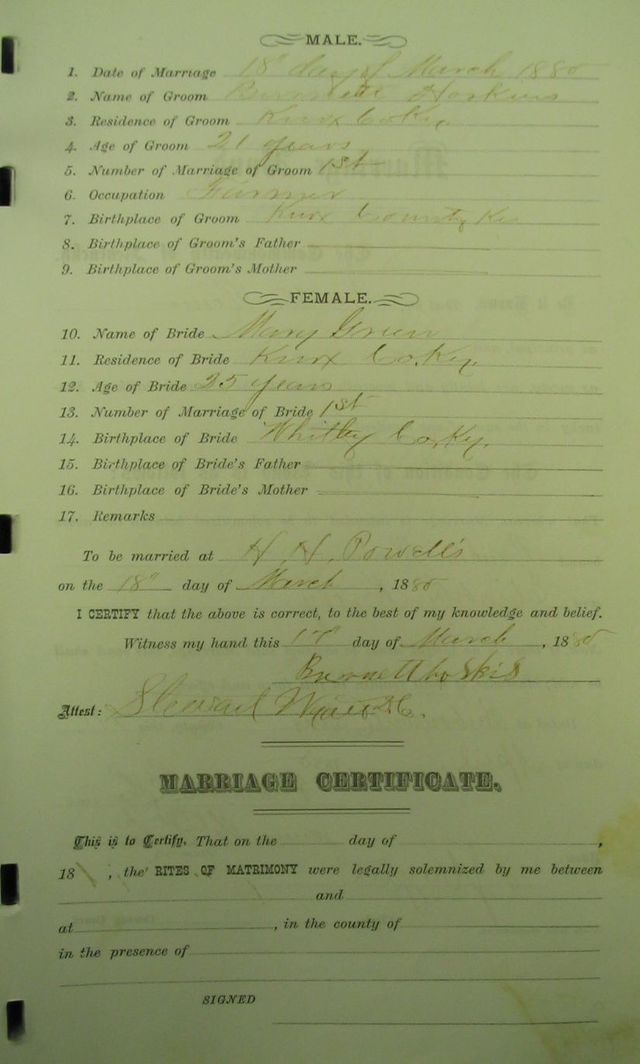 MALE.
1. Date of Marriage 18" day of March 1880
2. Name of Groom Burnett Hoskins
3. Residence of Groom Knox Co Ky,
4. Age of Groom 21 years
5. Number of Marriage of Groom 1st
6. Occupation Farmer
7. Birthplace of Groom Knox County Ky
8. Birthplace of Groom's Father
9. Birthplace of Groom's Mother
FEMALE.
10. Name of Bride Mary Green
11. Residence of Bride Knox Co. Ky,
12. Age of Bride 25 years
13. Number of Marriage of Bride 1st
14. Birthplace of Bride Whitley Co. Ky.
15. Birthplace of Bride's Father
16. Birthplace of Bride's Mother
17. Remarks
To be married at H. H. Powell's
on the 18" day of March, 1880
I CERTIFY that the above is correct, to the best of my knowledge and belief.
Witness my hand this day of March, 1880
Burnett hoskis
Attest:
MARRIAGE CERTIFICATE.
This is to Certify, That on the day of ,
18 , the RITES OF MATRIMONY were legally solemnized by me between
and
at , in the county of
in the presence of
SIGNED